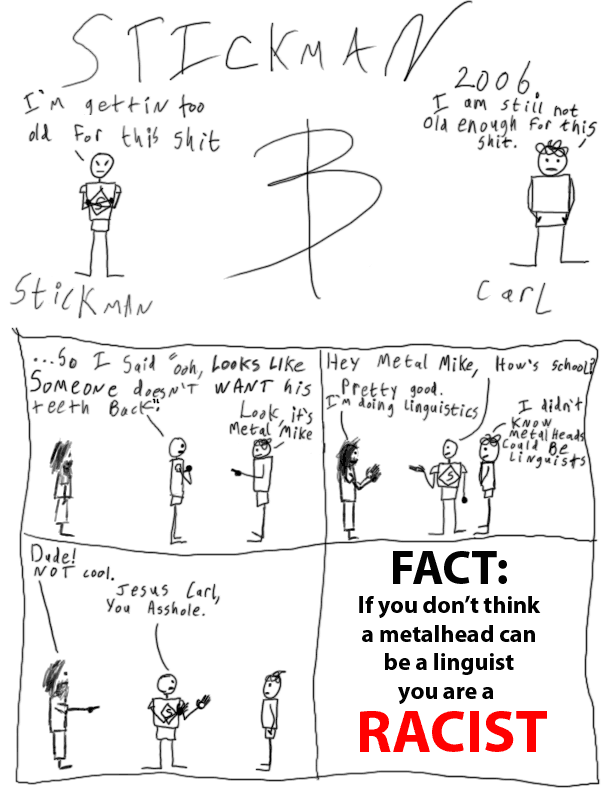 STICKMAN
3
I'm gettin too
old For this shit
2006.
I am still not
old enough for this
shit.
S
Stickman
Carl
...So I Said "ooh, Looks Like
Someone doesn't WANT his
teeth Back"!
Look, it's
Metal Mike
Hey Metal Mike, How's school?
Pretty good.
I'm doing linguistics
I didn't
KNOW
metalHeads
Could Be
Linguists
S
Dude!
NOT cool.
Jesus Carl,
You Asshole.
S
FACT:
If you don't think
a metalhead can
be a linguist
you are a
RACIST